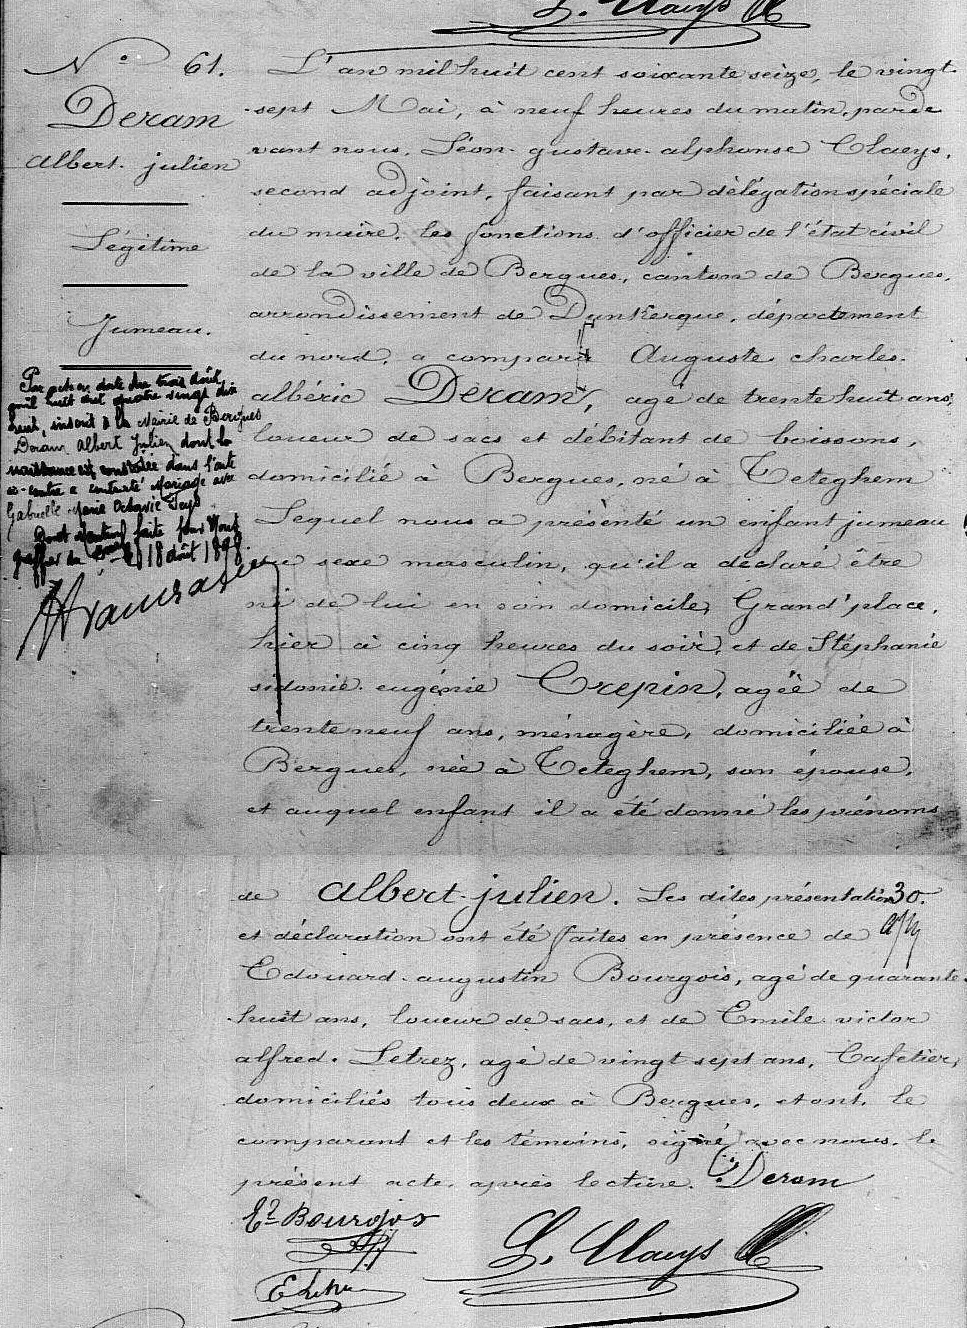 L. Claeys
No 61.
Deram
albert. julien
Légitime
Jumeau.
Par acte en date du trois août
mil huit cent quatre vingt dix
huit, inscrit à la Mairie de Bergues
Deram Albert Julien dont la
naissance est constatée dans l'acte
ci-contre a contracté Mariage avec
Gabrielle Marie Octavie
Dont Mention faite par Nous
greffier du 18 août 1898
L'an mil huit cent soixante seize, le vingt-
sept Mai, à neuf heures du matin, parde
vant nous, Léon-gustave-alphonse Claeys,
second adjoint, faisant par délégation spéciale
du maire, les fonctions d'officier de l'état civil
de la ville de Bergues, canton de Bergues,
arrondissement de Dunkerque, département
du nord, a comparu Auguste charles-
albéric Deram, agé de trente huit ans,
loueur de sacs et débitant de boissons,
domicilié à Bergues, né à Teteghem
Lequel nous a présenté un enfant jumeau
du sexe masculin, qu'il a déclaré être
né de lui en son domicile, Grand'place,
hier à cinq heures du soir, et de Stéphanie
sidonie eugénie Crepin, agée de
trente neuf ans, ménagère, domiciliée à
Bergues, née à Teteghem, son épouse,
et auquel enfant il a été donné les prénoms
de albert-julien. Les dites présentation 30.
et déclaration ont été faites en présence de
Edouard-augustin Bourgois, agé de quarante
huit ans, loueur de sacs, et de Emile victor
alfred. Letrez, agé de vingt sept ans, Cafetier,
domiciliés tous deux à Bergues, et ont, le
comparant et les témoins, signé avec nous, le
présent acte, après lecture. Deram
Ed Bourgois
L. Claeys